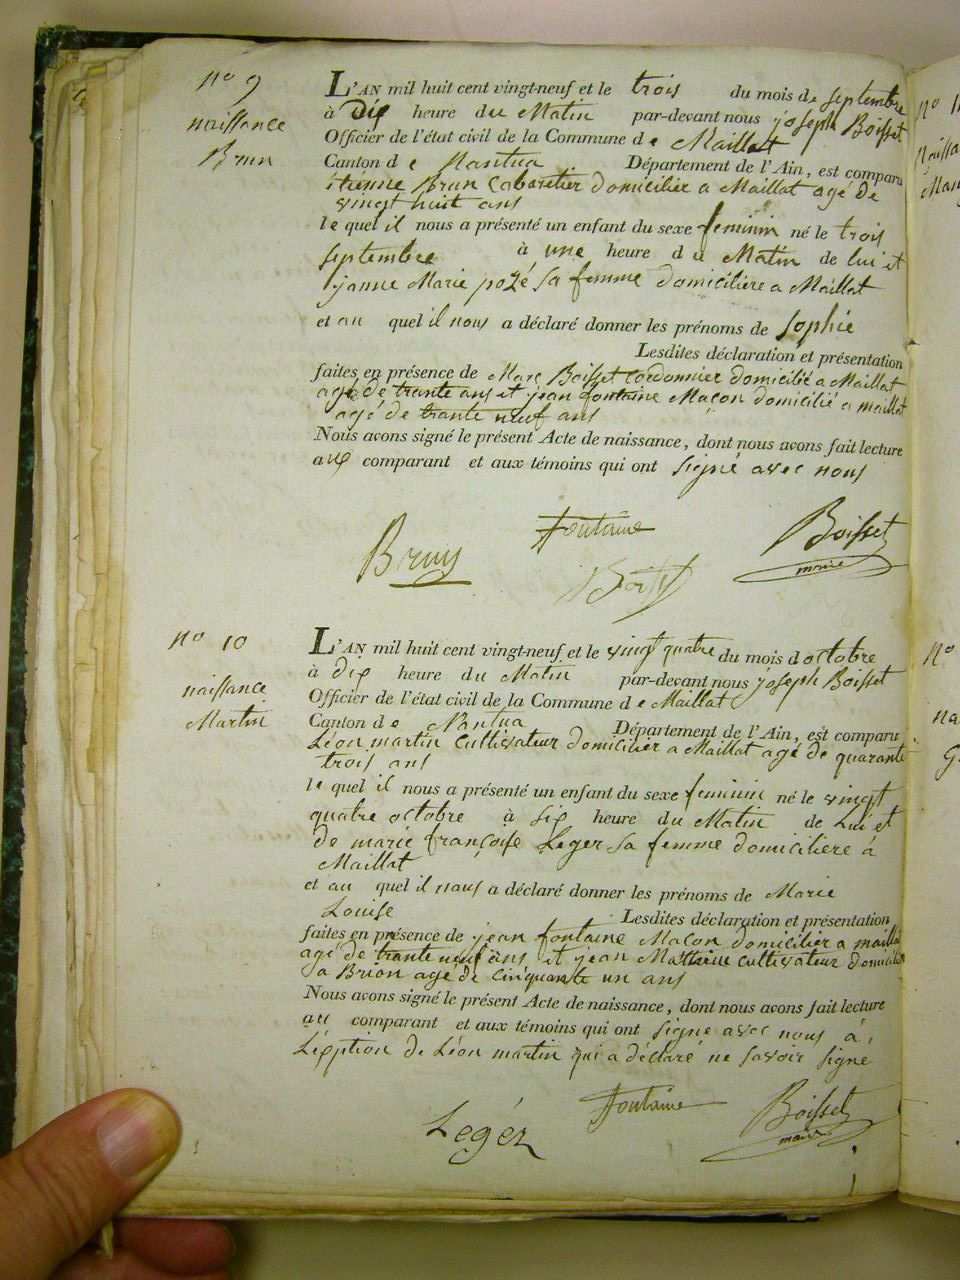 no 9
naissance
Brun
L'AN mil huit cent vingt-neuf et le trois du mois de septembre
à dix heure du Matin par-devant nous joseph Boisset
Officier de l'état civil de la Commune de Maillat
Canton de Nantua Département de l'Ain, est comparu
étienne Brun Cabaretier domicilier a Maillat agé de
vingt huit ans
le quel il nous a présenté un enfant du sexe feminin né le trois
septembre à une heure du Matin de lui et
janne Marie pozé sa femme domiciliere a Maillat
et au quel il nous a déclaré donner les prénoms de sophie
Lesdites déclaration et présentation
faites en présence de Marc Boisset Cordonnier domicilié a Maillat
agé de trante ans et jean fontaine Maçon domicilié a maillat
agé de trante neuf ans
Nous avons signé le présent Acte de naissance, dont nous avons fait lecture
aux comparant et aux témoins qui ont signé avec nous
Brun Fontaine Boisset
maire
no 10
naissance
Martin
L'AN mil huit cent vingt-neuf et le vingt quatre du mois d octobre
à dix heure du Matin par-devant nous joseph Boisset
Officier de l'état civil de la Commune de Maillat
Canton de Nantua Département de l'Ain, est comparu
Léon martin Cultivateur domicilier a Maillat agé de quarante
trois ans
le quel il nous a présenté un enfant du sexe feminin né le vingt
quatre octobre à six heure du Matin de Lui et
de marie françoise Leger sa femme domiciliere à
Maillat
et au quel il nous a déclaré donner les prénoms de Marie
Louise
Lesdites déclaration et présentation
faites en présence de jean fontaine Macon domicilier a maillat
agé de trante neuf ans et jean cultivateur domicilier
a Brion agé de cinquante un ans
Nous avons signé le présent Acte de naissance, dont nous avons fait lecture
au comparant et aux témoins qui ont signe avec nous à
Léxption de Léon martin qui a déclaré ne savoir signe
Legér Fontaine Boisset
maire